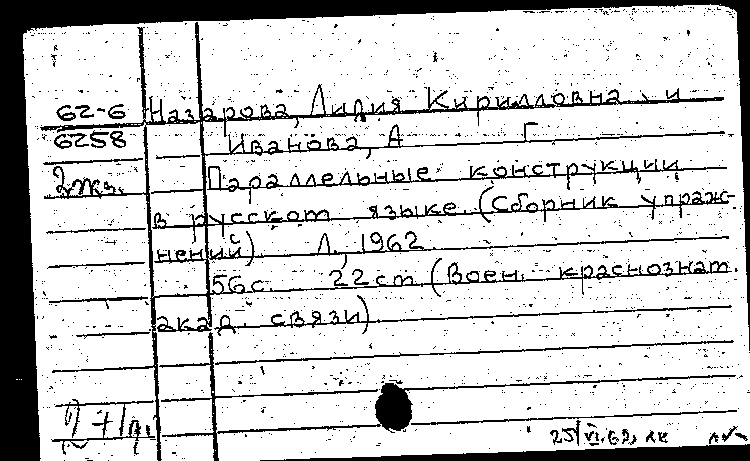 62-6 Назарова, Лидия Кирилловна и
6258 Иванова, А Г
2 экз. Параллельные конструкции
в русском языке (Сборник упраж-
нений). Л., 1962
56с. 22см (Воен. краснознам.
акад. связи)
25/VI.62,